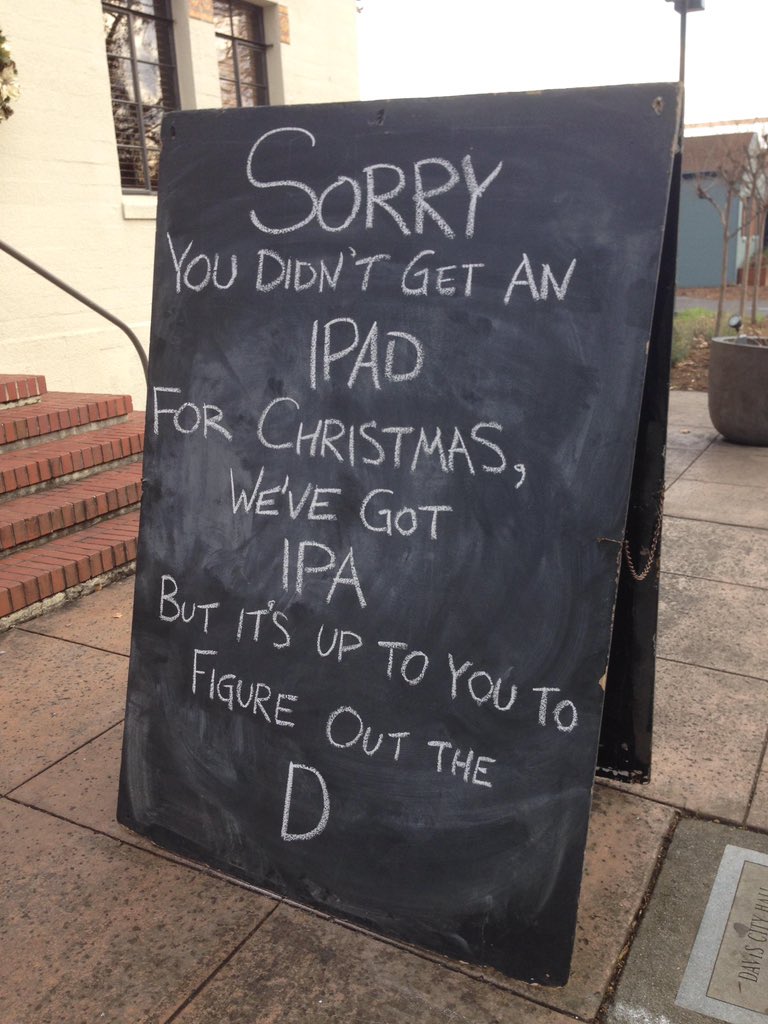 SORRY
YOU DIDN'T GET AN
IPAD
FOR CHRISTMAS,
WE'VE GOT
IPA
BUT IT'S UP TO YOU TO
FIGURE OUT THE
D
DAVIS CITY HALL